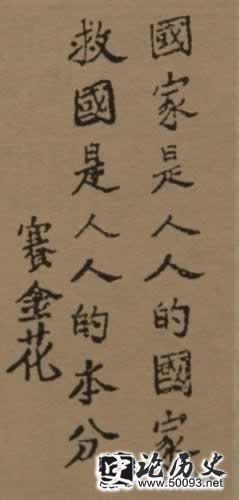 國家是人人的國家
救國是人人的本分
賽金花
史论历史
www.50093.net